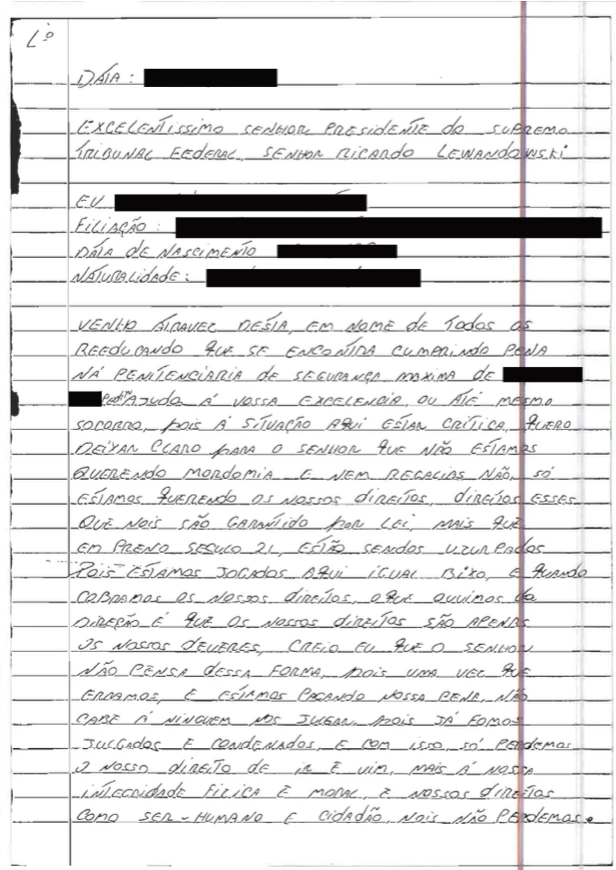 1º
DATA:
EXCELENTISSIMO SENHOR PRESIDENTE DO SUPREMO
TRIBUNAL FEDERAL, SENHOR RICARDO LEWANDOWSKI
EU
FILIAÇÃO:
DATA DE NASCIMENTO
NATURALIDADE:
VENHO ATRAVEL DESTA, EM NOME DE TODOS OS
REEDUCANDO QUE SE ENCONTRA CUMPRINDO PENA
NA PENITENCIARIA DE SEGURANÇA MAXIMA DE
Pedir AJUDA Á VOSSA EXCELENCIA, OU ATÉ MESMO
SOCORRO, POIS Á SITUAÇÃO AQUI ESTAR CRÍTICA, QUERO
DEIXAR CLARO PARA O SENHOR QUE NÃO ESTAMOS
QUERENDO MORDOMIA E NEM REGALIAS NÃO, SÓ
ESTAMOS QUERENDO OS NOSSOS DIREITOS, DIREITOS ESSES
QUE NOIS SÃO GARANTIDO POR LEI, MAIS QUE
EM PRENO SECULO 21, ESTÃO SENDOS UZURPADOS
POIS ESTAMOS JOGADOS AQUI IGUAL BIXO, E QUANDO
COBRAMOS OS NOSSOS DIREITOS, OQUE OUVIMOS DA
DIREÇÃO É QUE OS NOSSOS DIREITOS SÃO APENAS
OS NOSSOS DEVERES, CREIO EU QUE O SENHOR
NÃO PENSA DESSA FORMA, POIS UMA VEZ QUE
ERRAMOS, E ESTAMOS PAGANDO NOSSA PENA, NÃO
CABE Á NINGUEM NOS JUGAR, POIS JÁ FOMOS
JULGADOS E CONDENADOS, E COM ISSO, SÓ PERDEMOS
O NOSSO DIREITO DE IR E VIM, MAIS Á NOSSA
INTEGRIDADE FIZICA E MORAL, E NOSSOS DIREITOS
COMO SER-HUMANO E CIDADÃO, NOIS NÃO PERDEMOS.